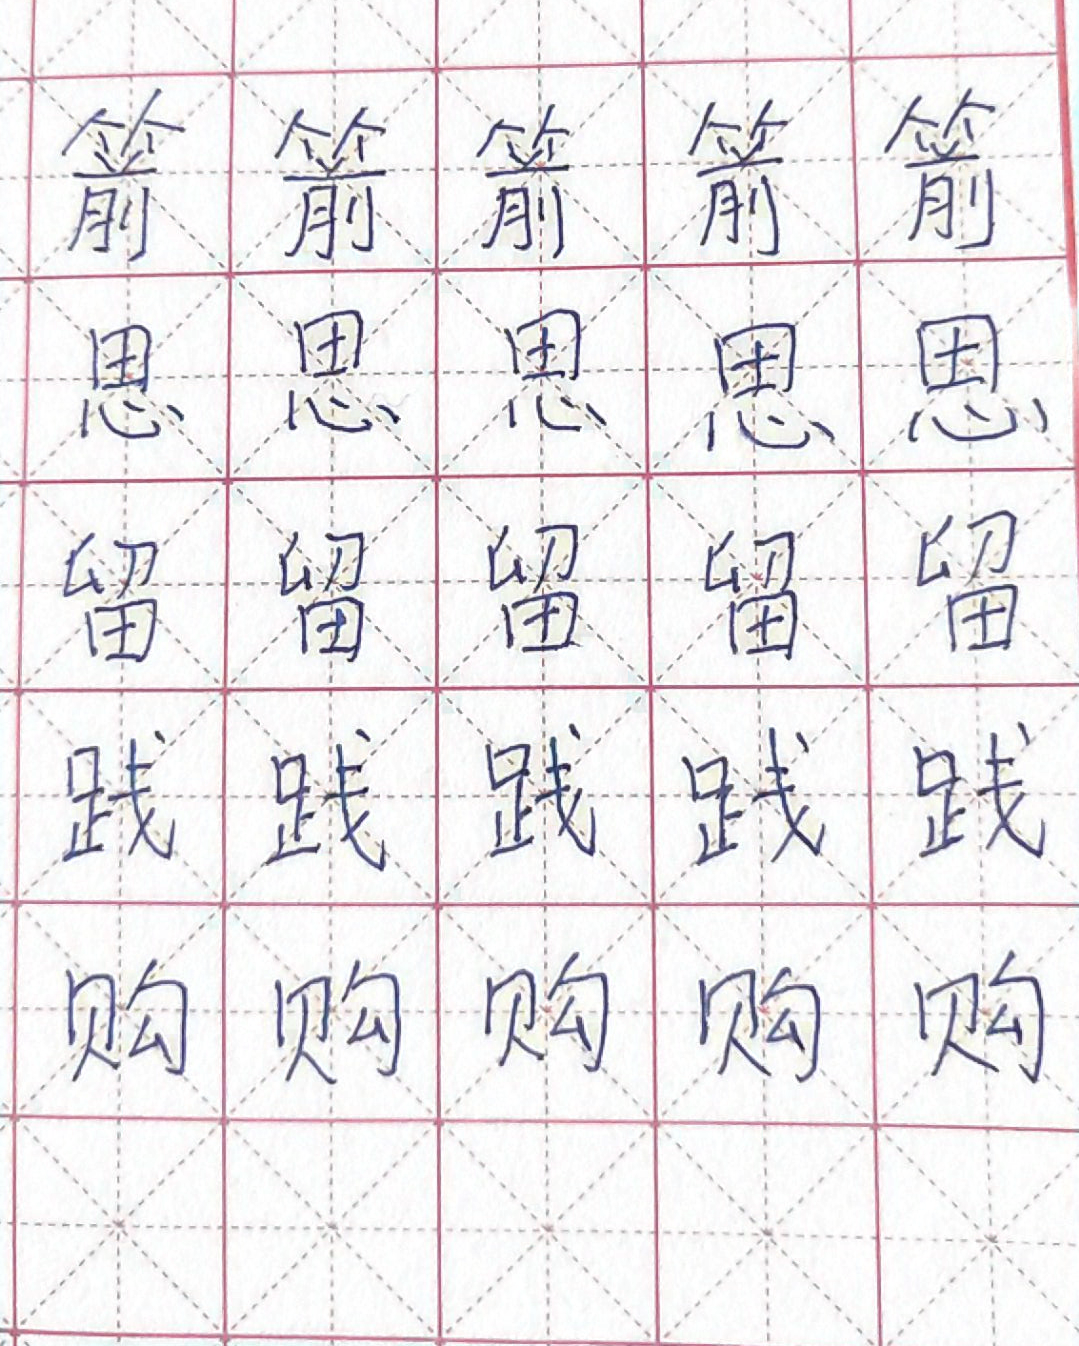 箭箭箭箭箭
思思思思思
留留留留留
践践践践践
购购购购购